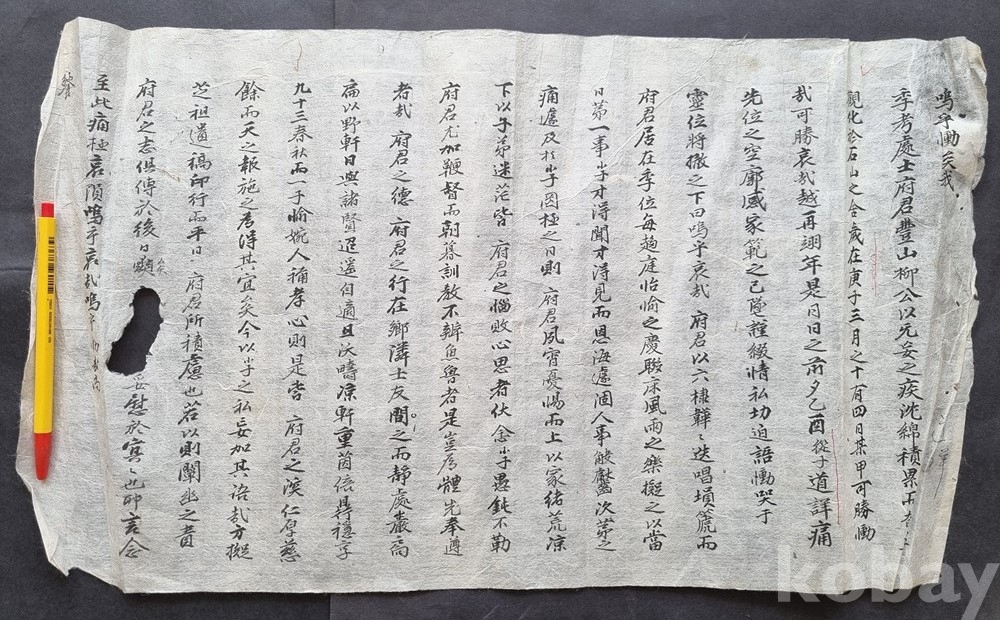 嗚乎慟哉
季考處士府君豊山柳公以无妄之疾沈綿積累
觀化於石山之舍歲在庚子三月之十有四日某甲可勝慟
哉可勝哀哉越再翊年是月日之前夕乙酉從子道詳痛
先位之空廓感家範之已墜謹綴情私切迫語慟哭于
靈位將撤之下曰嗚乎哀哉 府君以六棣韡〻迭唱塤篪而
府君居在季位每趨庭怡愉之慶聯床風雨之樂擬之以當
日第一事小子才淂聞才淂見而恩海遽涸人事飜盤次第之
痛遽及於小子罔極之日則 府君夙宵憂惕而上以家緖荒凉
下以午弟迷茫皆 府君之惱敗心思者伏念小子愚鈍不勒
府君尤加鞭督而朝暮訓敎不辨魚魯者是豈爲體先奉遵
者哉 府君之德 府君之行在鄕隣士友間之而靜處嚴
扁以野軒日與諸賢逍遥自適且沃疇凉軒重茵倍具得穩享
九十三春秋而一子愉婉人稱孝心則是皆 府君之深仁厚慈
餘而天之報施之爲得其宜矣今以小子之私妄加其語哉方擬
芝祖遺稿印行而平日 府君所積慮也若以則闡幽之責
府君之志俱傳於後日 慰於冥〻也耶言念
至此痛極哀隕嗚乎哀哉嗚乎
饗
kobay